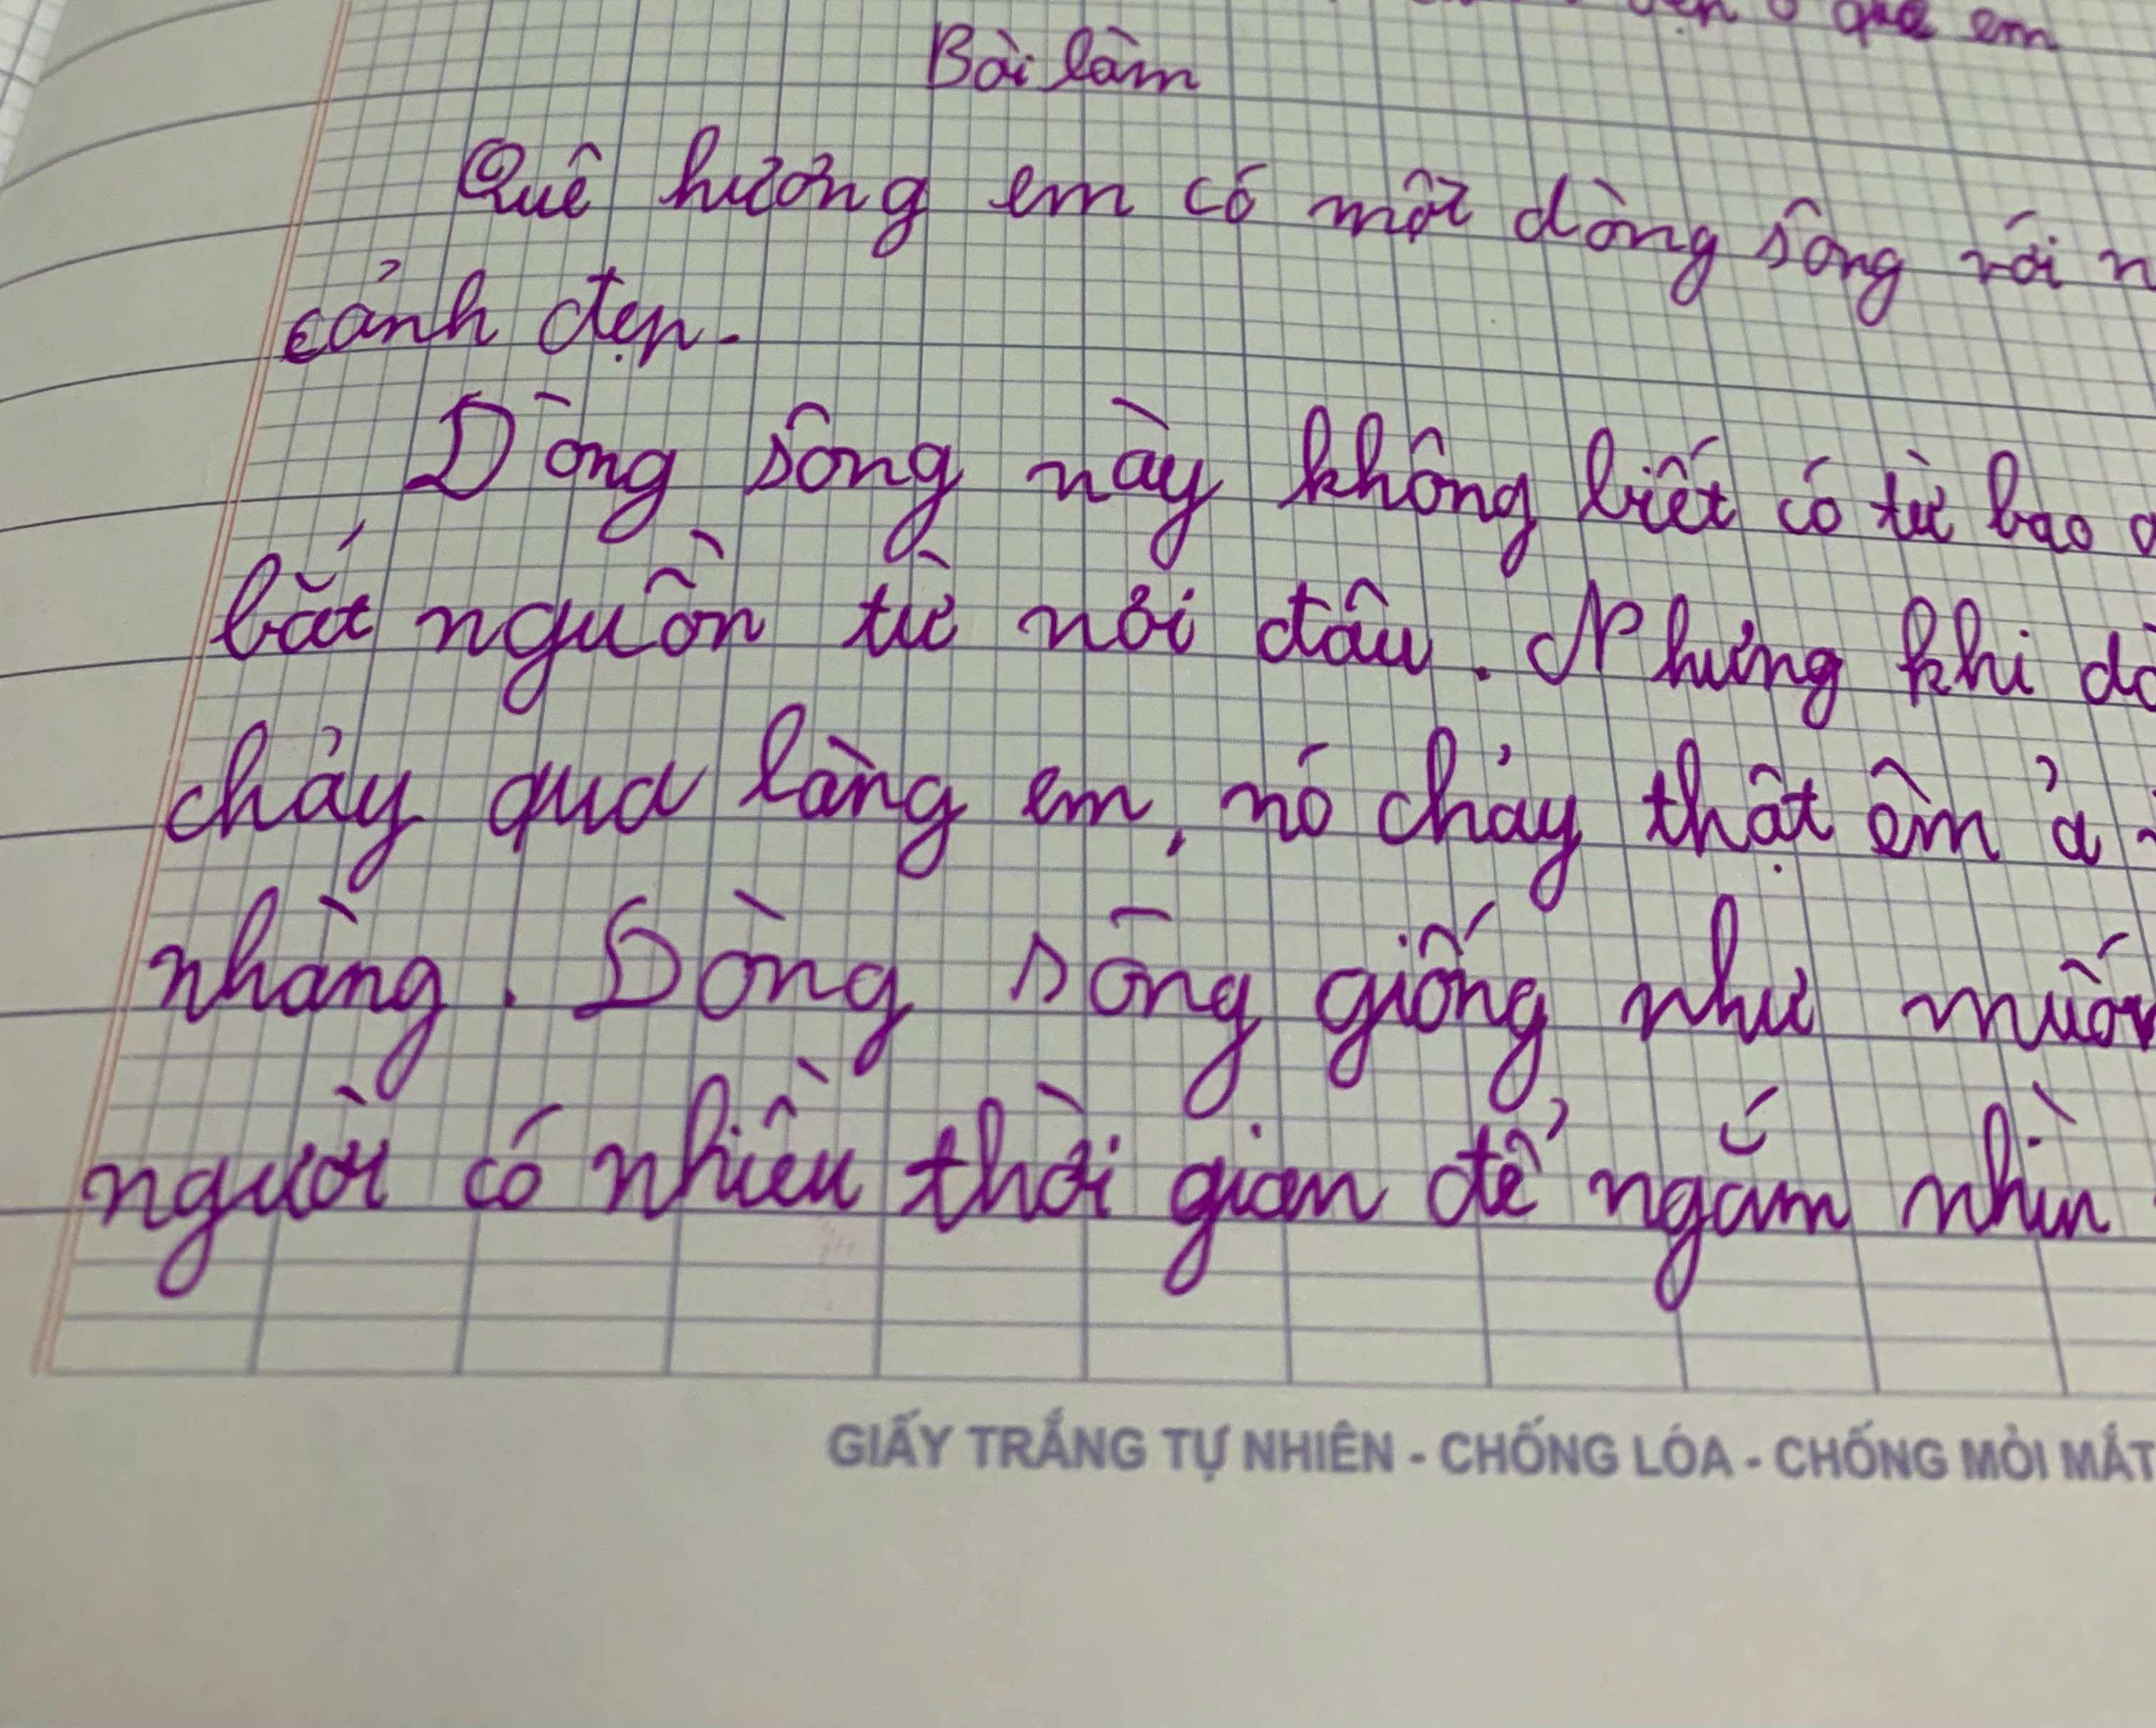 quê em
Bài làm
Quê hương em có một dòng sông với
cảnh đẹp.
Dòng sông này không biết có từ bao
bắt nguồn từ nơi đâu. Nhưng khi
chảy qua làng em, nó chảy thật êm ả
nhàng. Dòng sông giống như
người có nhiều thời gian để ngắm nhìn
GIẤY TRẮNG TỰ NHIÊN - CHỐNG LÓA - CHỐNG MỎI MẮT